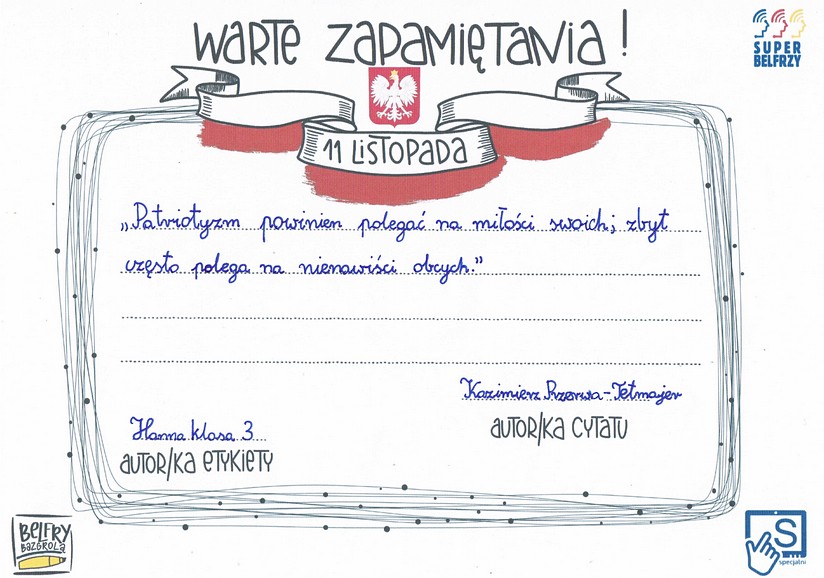 WARTE ZAPAMIĘTANIA!
SUPER
BELFRZY
11 LISTOPADA
„Patriotyzm powinien polegać na miłości swoich; zbyt
często polega na nienawiści obcych."
Kazimierz Przerwa-Tetmajer
AUTOR/KA CYTATU
Hanna klasa 3
AUTOR/KA ETYKIETY
BELFRY
BAZGROLĄ
S
specjalni